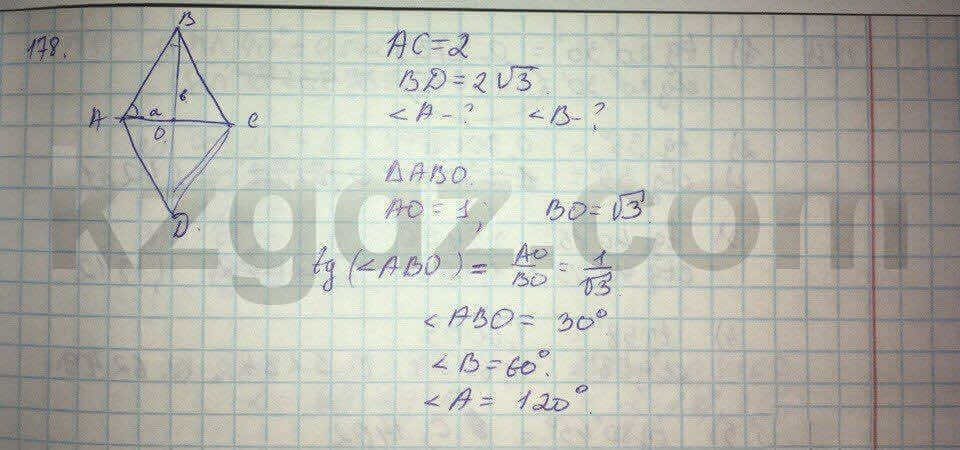 178.
B
AC=2
BD=2√3.
<A-? <B-?
A a в C
O
D.
ΔABO.
AO=1; BO=√3.
tg(<ABO)= AO/BO = 1/√3.
<ABO= 30°.
<B=60°.
<A= 120°.
kzgdz.com